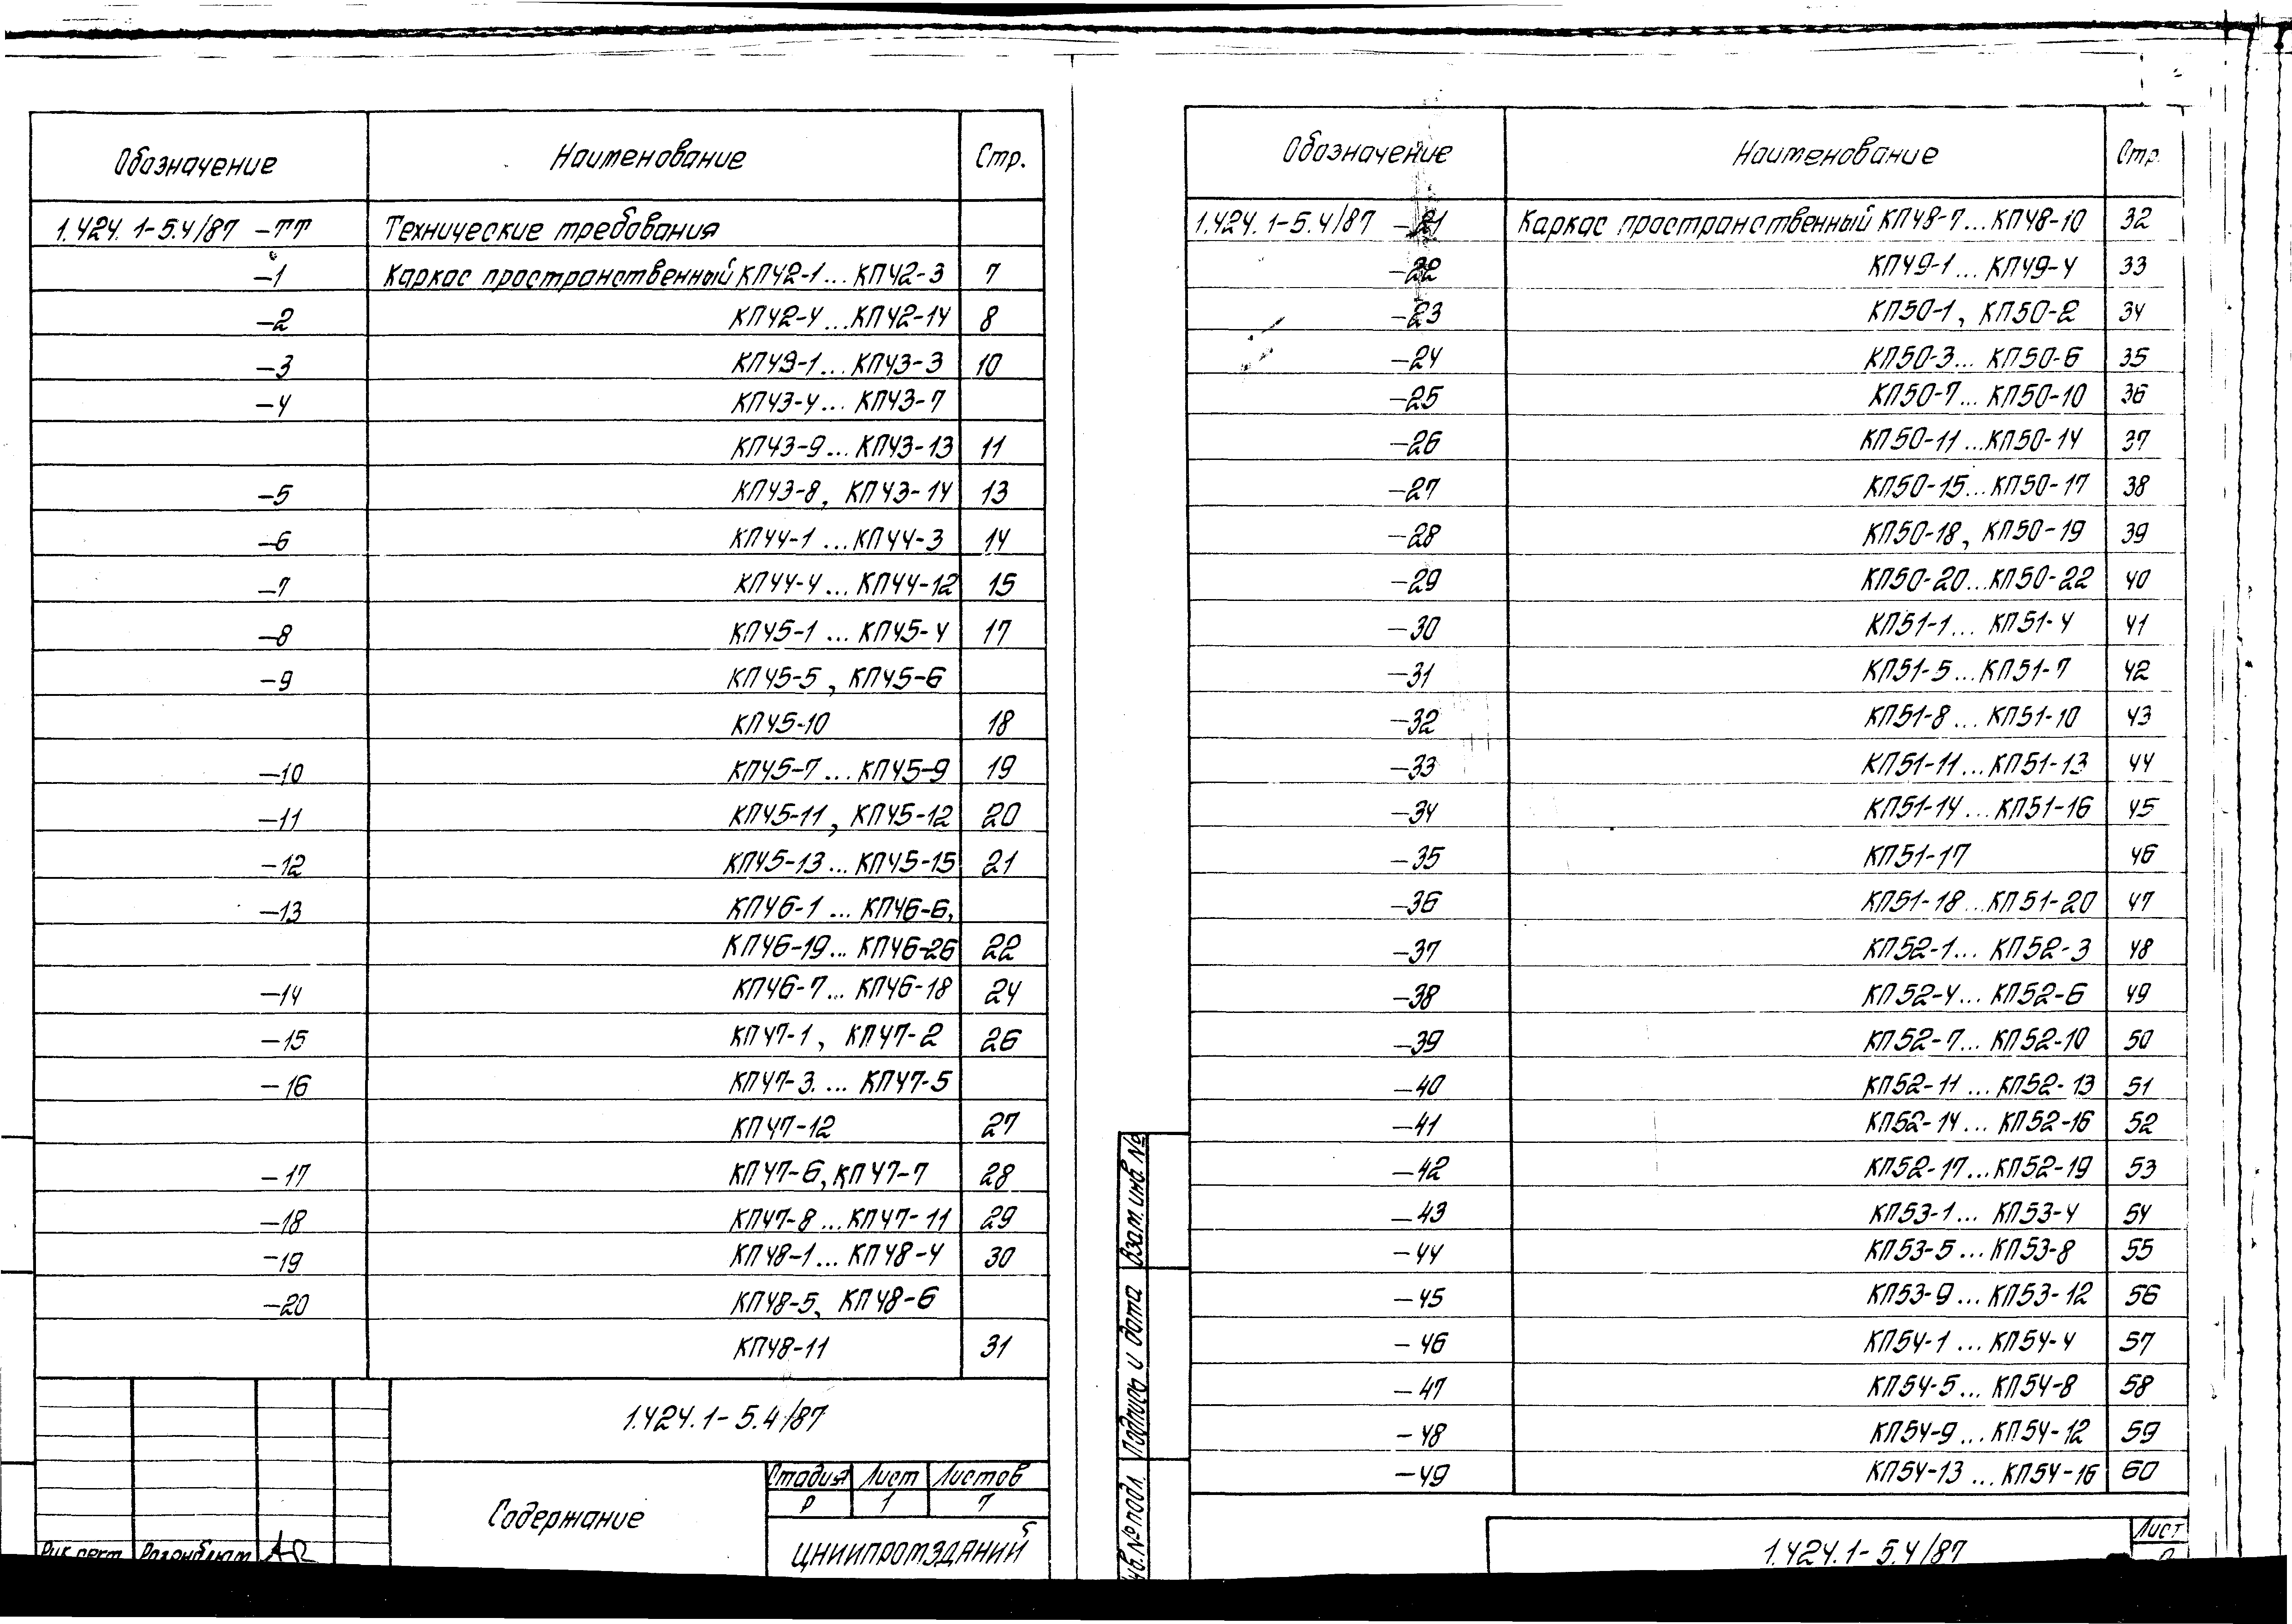 Обозначение Наименование Стр.
1.424.1-5.4/87 -ТТ Технические требования
-1 Каркас пространственный КП42-1...КП42-3 7
-2 КП42-4...КП42-14 8
-3 КП43-1...КП43-3 10
-4 КП43-4...КП43-7
КП43-9...КП43-13 11
-5 КП43-8, КП43-14 13
-6 КП44-1...КП44-3 14
-7 КП44-4...КП44-12 15
-8 КП45-1...КП45-4 17
-9 КП45-5, КП45-6
КП45-10 18
-10 КП45-7...КП45-9 19
-11 КП45-11, КП45-12 20
-12 КП45-13...КП45-15 21
-13 КП46-1...КП46-6,
КП46-19...КП46-26 22
-14 КП46-7...КП46-18 24
-15 КП47-1, КП47-2 26
-16 КП47-3...КП47-5
КП47-12 27
-17 КП47-6, КП47-7 28
-18 КП47-8...КП47-11 29
-19 КП48-1...КП48-4 30
-20 КП48-5, КП48-6
КП48-11 31
1.424.1-5.4/87
Содержание
Стадия Лист Листов
Р 1 7
ЦНИИПРОМЗДАНИЙ
Обозначение Наименование Стр.
1.424.1-5.4/87 -21 Каркас пространственный КП48-7...КП48-10 32
-22 КП49-1...КП49-4 33
-23 КП50-1, КП50-2 34
-24 КП50-3...КП50-6 35
-25 КП50-7...КП50-10 36
-26 КП50-11...КП50-14 37
-27 КП50-15...КП50-17 38
-28 КП50-18, КП50-19 39
-29 КП50-20...КП50-22 40
-30 КП51-1...КП51-4 41
-31 КП51-5...КП51-7 42
-32 КП51-8...КП51-10 43
-33 КП51-11...КП51-13 44
-34 КП51-14...КП51-16 45
-35 КП51-17 46
-36 КП51-18...КП51-20 47
-37 КП52-1...КП52-3 48
-38 КП52-4...КП52-6 49
-39 КП52-7...КП52-10 50
-40 КП52-11...КП52-13 51
-41 КП52-14...КП52-16 52
-42 КП52-17...КП52-19 53
-43 КП53-1...КП53-4 54
-44 КП53-5...КП53-8 55
-45 КП53-9...КП53-12 56
-46 КП54-1...КП54-4 57
-47 КП54-5...КП54-8 58
-48 КП54-9...КП54-12 59
-49 КП54-13...КП54-16 60
Взам. инв. №
Подпись и дата
№ подл.
1.424.1-5.4/87
Лист